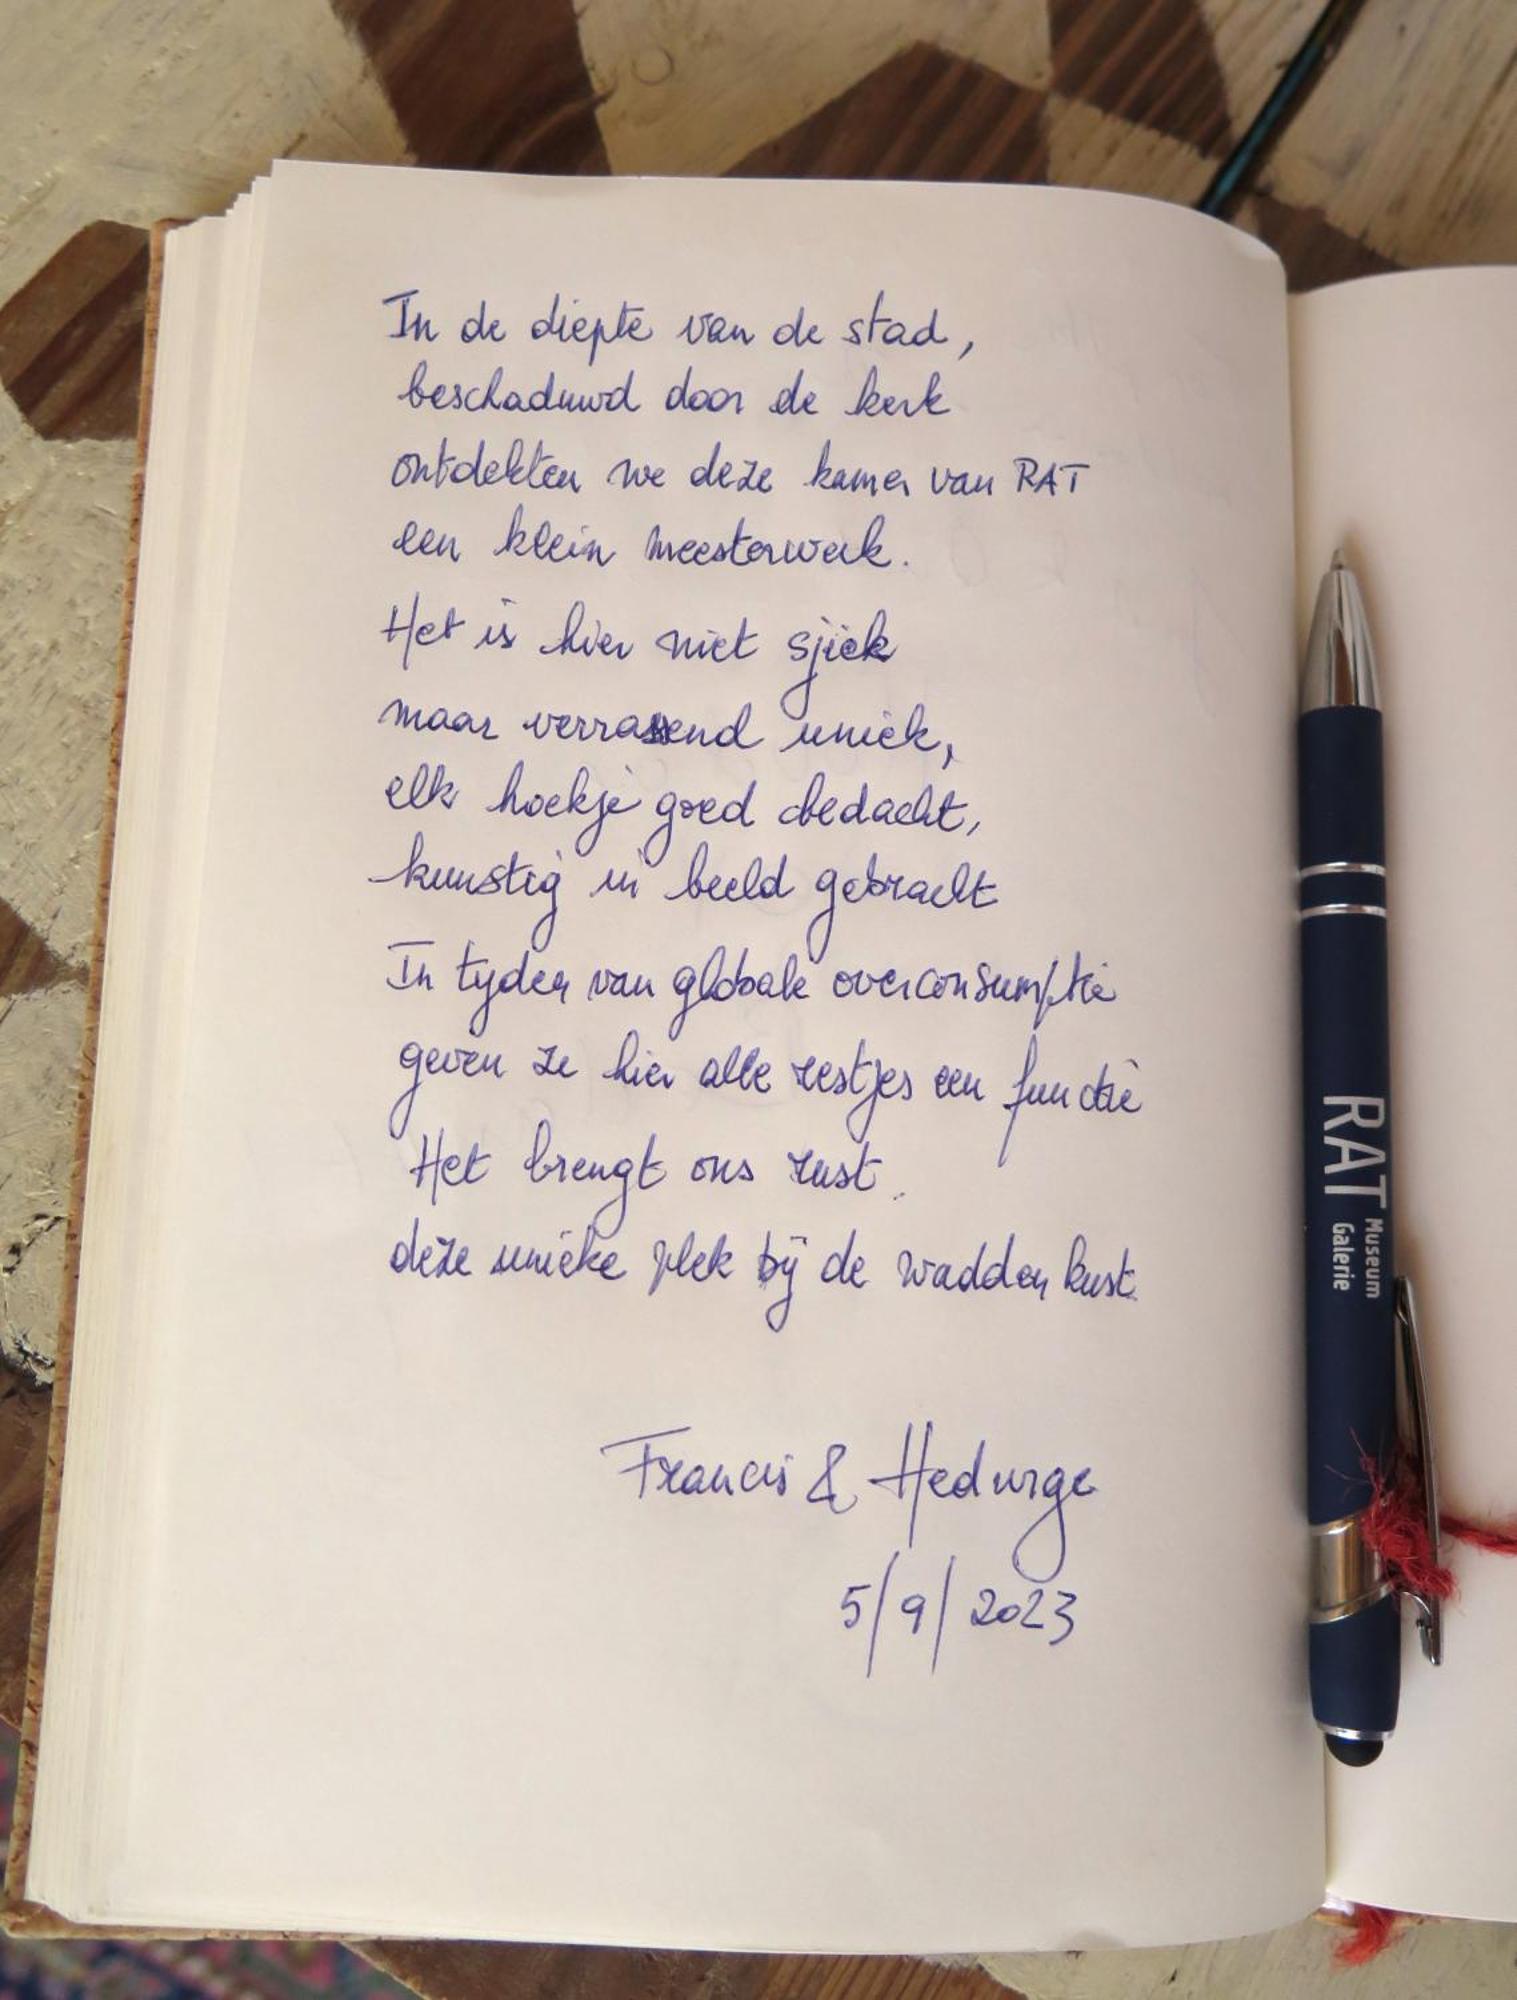 In de diepte van de stad,
beschaduwd door de kerk
ontdekten we deze kamer van RAT
een klein meesterwerk.
Het is hier niet sjiek
maar verrassend uniek,
elk hoekje goed bedacht,
kunstig in beeld gebracht
In tyden van globale overconsumptie
geven ze hier alle restjes een functie
Het brengt ons rust.
deze unieke plek bij de wadden kust.
Francis & Hedwige
5/9/2023
RAT Museum
Galerie